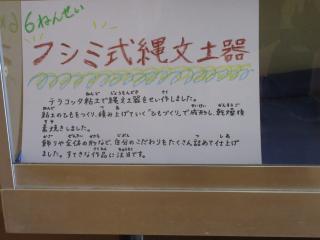 6ねんせい
フシミ式縄文土器
テラコッタ粘土で縄文土器をせい作しました。
粘土のひもをつくり、積み上げていく"ひもづくり"で成形し、乾燥後
素焼きしました。
飾りや全体の形など、自分のこだわりをたくさん詰めて仕上げ
ました。すてきな作品に注目です。